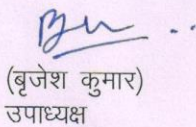 (बृजेश कुमार)
उपाध्यक्ष